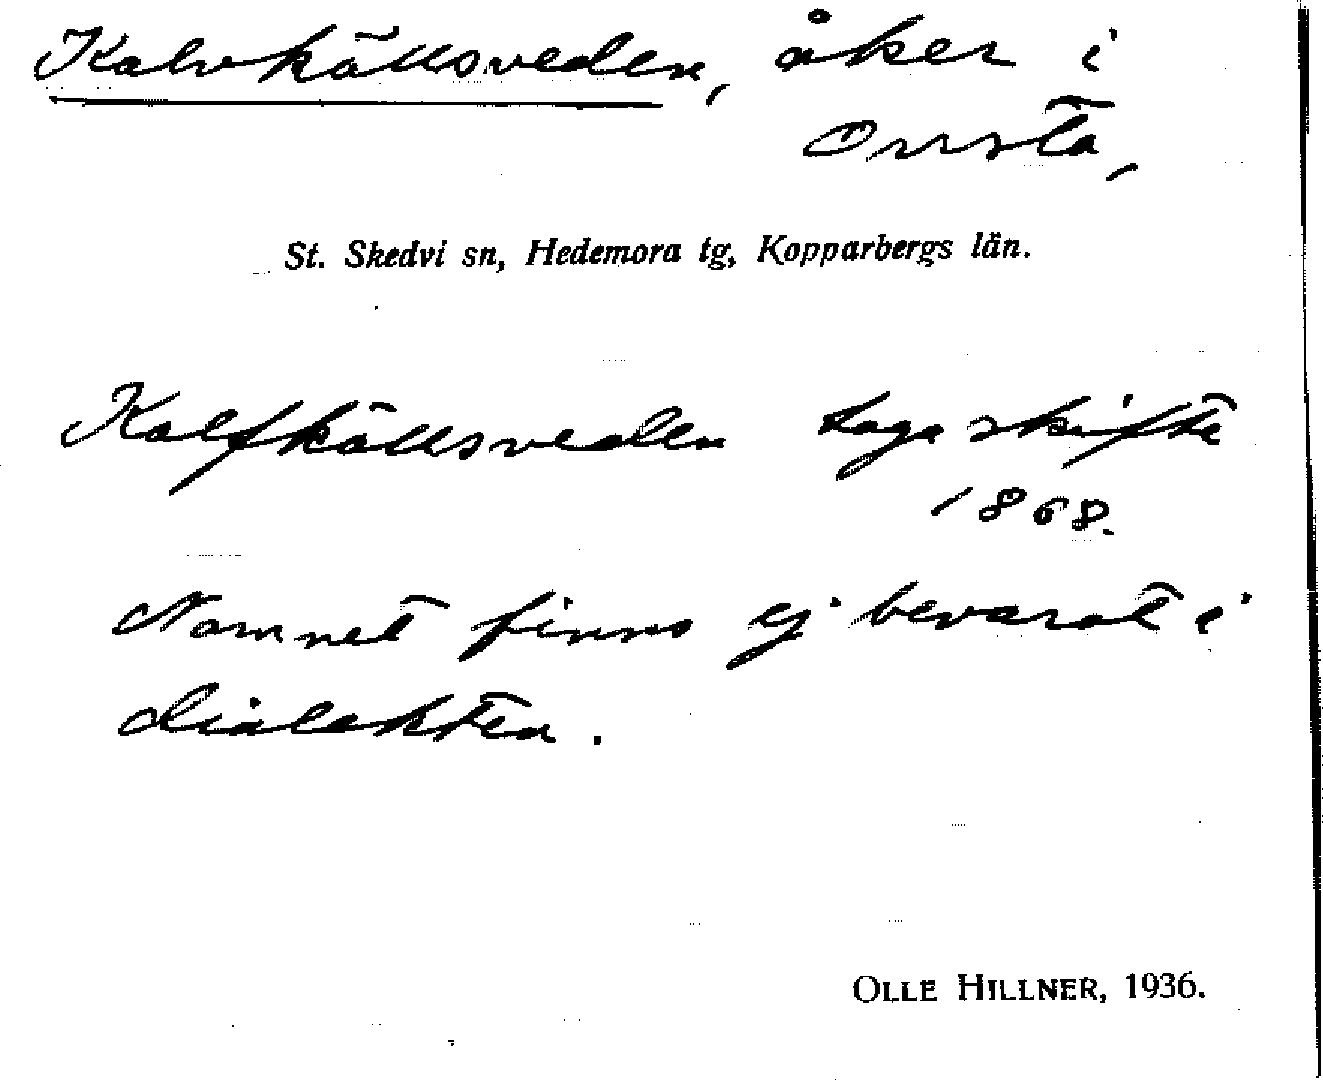 Kalvkällsveden, åker i
Onsta,
St. Skedvi sn, Hedemora tg, Kopparbergs län.
Kalfkällsveden Lagaskifte
1868.
Namnet finns ej bevarat i
dialekten.
OLLE HILLNER, 1936.